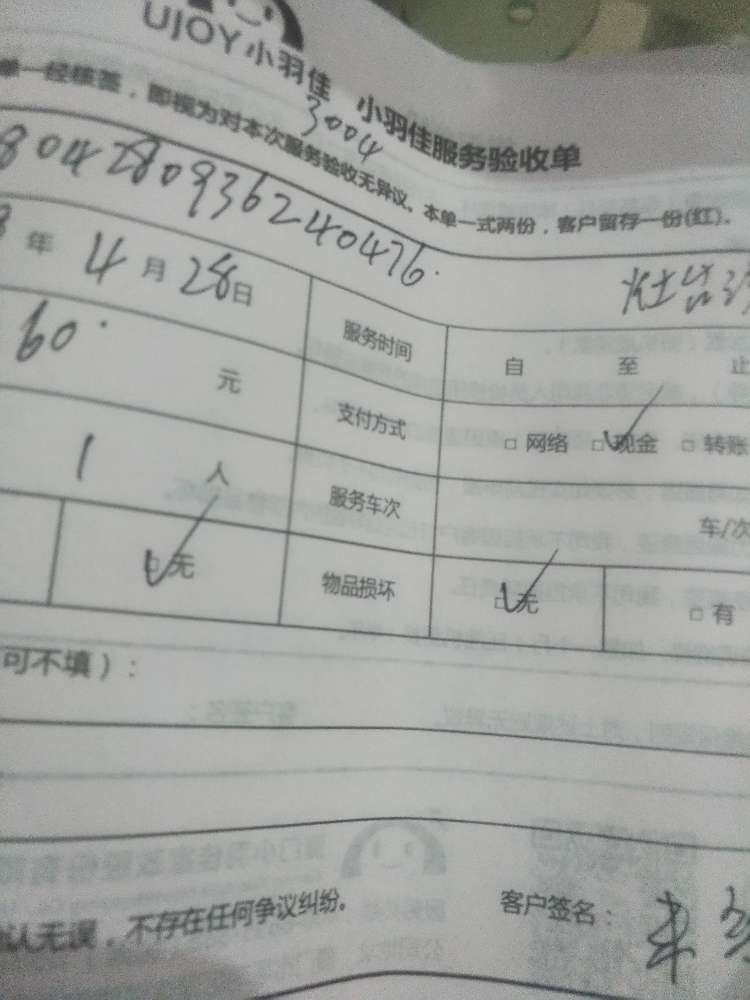 UJOY小羽佳 小羽佳服务验收单
3004
单一经核签，即视为对本次服务验收无异议。本单一式两份，客户留存一份(红)。
804280936240476.
8年 4月28日 服务时间 自 至 止
60. 元 支付方式 □ 网络 □ 现金 □ 转账
1 人 服务车次 车/次
□ 无 物品损坏 □ 无 □ 有
可不填）：
认无误，不存在任何争议纠纷。 客户签名：